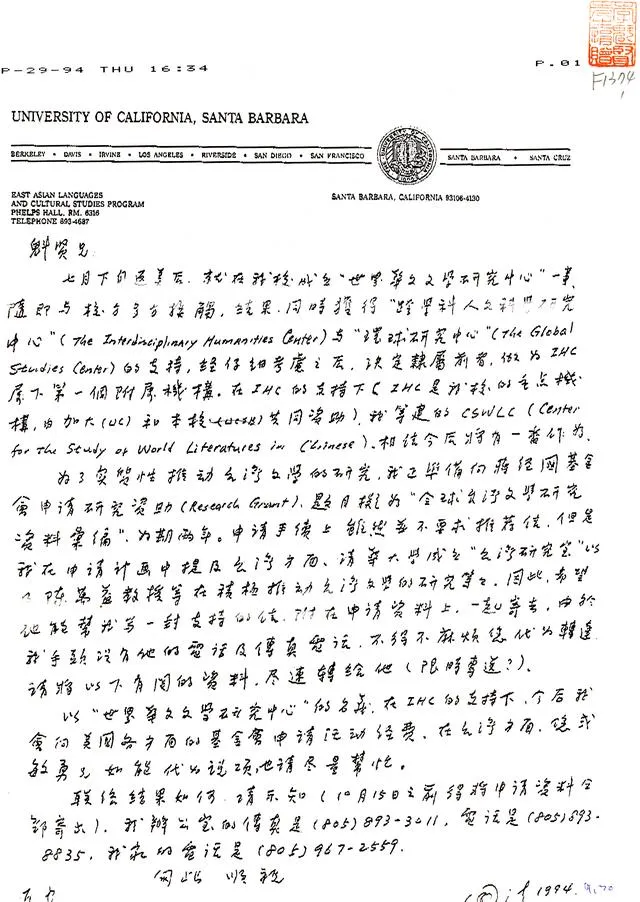 P-29-94 THU 16:34 P.01
李魁賢
F1374
1
UNIVERSITY OF CALIFORNIA, SANTA BARBARA
BERKELEY • DAVIS • IRVINE • LOS ANGELES • RIVERSIDE • SAN DIEGO • SAN FRANCISCO SANTA BARBARA • SANTA CRUZ
EAST ASIAN LANGUAGES
AND CULTURAL STUDIES PROGRAM
PHELPS HALL, RM. 6316
TELEPHONE 893-4687
SANTA BARBARA, CALIFORNIA 93106-4130
魁賢兄:
七月下旬返美后,就在我校成立"世界華文文學研究中心"一事,
隨即与校方多方接觸,結果,同時獲得"跨學科人文科學研究
中心"(The Interdisciplinary Humanities Center)与"環球研究中心"(The Global
Studies Center)的支持,經仔細考慮之后,決定隸屬前者,做为IHC
屬下第一個附屬機構。在IHC的支持下(IHC是我校的重点機
構,由加大(UC)和本校共同資助),我筹建的CSWLC(Center
for the Study of World Literatures in Chinese),相信今后將有一番作为。
为了实質性推动台湾文學的研究,我正準備向蔣經國基金
會申請研究資助(Research Grant),題目擬为"全球台湾文學研究
資料彙編",为期兩年。申請手續上雖然並不要求推荐信,但是
我在申請計画中提及台湾方面、清華大學成立"台湾研究室"以
及陳萬益教授等在積極推动台湾文學的研究等等。因此,希望
他能幫我写一封支持的信,附在申請資料上,一起寄去,由於
我手頭没有他的電話及傳真電話,不得不麻煩您代为轉達
請將以下有関的資料,尽速轉給他(限時專送?)。
以"世界華文文學研究中心"的名義,在IHC的支持下,今后我
會向美國各方面的基金會申請活动经费,在台湾方面,您或
敏勇兄如能代为説項,也請尽量幫忙。
联絡結果如何,請示知(10月15日之前得將申請資料全
部寄出)。我辦公室的傳真是(805)893-3011,電話是(805)893-
8835,我家的電話是(805)967-2559.
匆此 順祝
1994. 9.